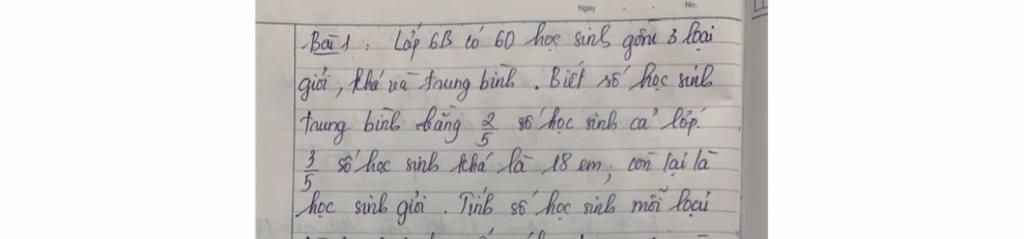 Ngày . . No.
Bài 1 : Lớp 6B có 60 học sinh gồm 3 loại
giỏi, khá và trung bình. Biết số học sinh
trung bình bằng 2/5 số học sinh cả lớp.
3/5 số học sinh khá là 18 em, còn lại là
học sinh giỏi. Tính số học sinh mỗi loại